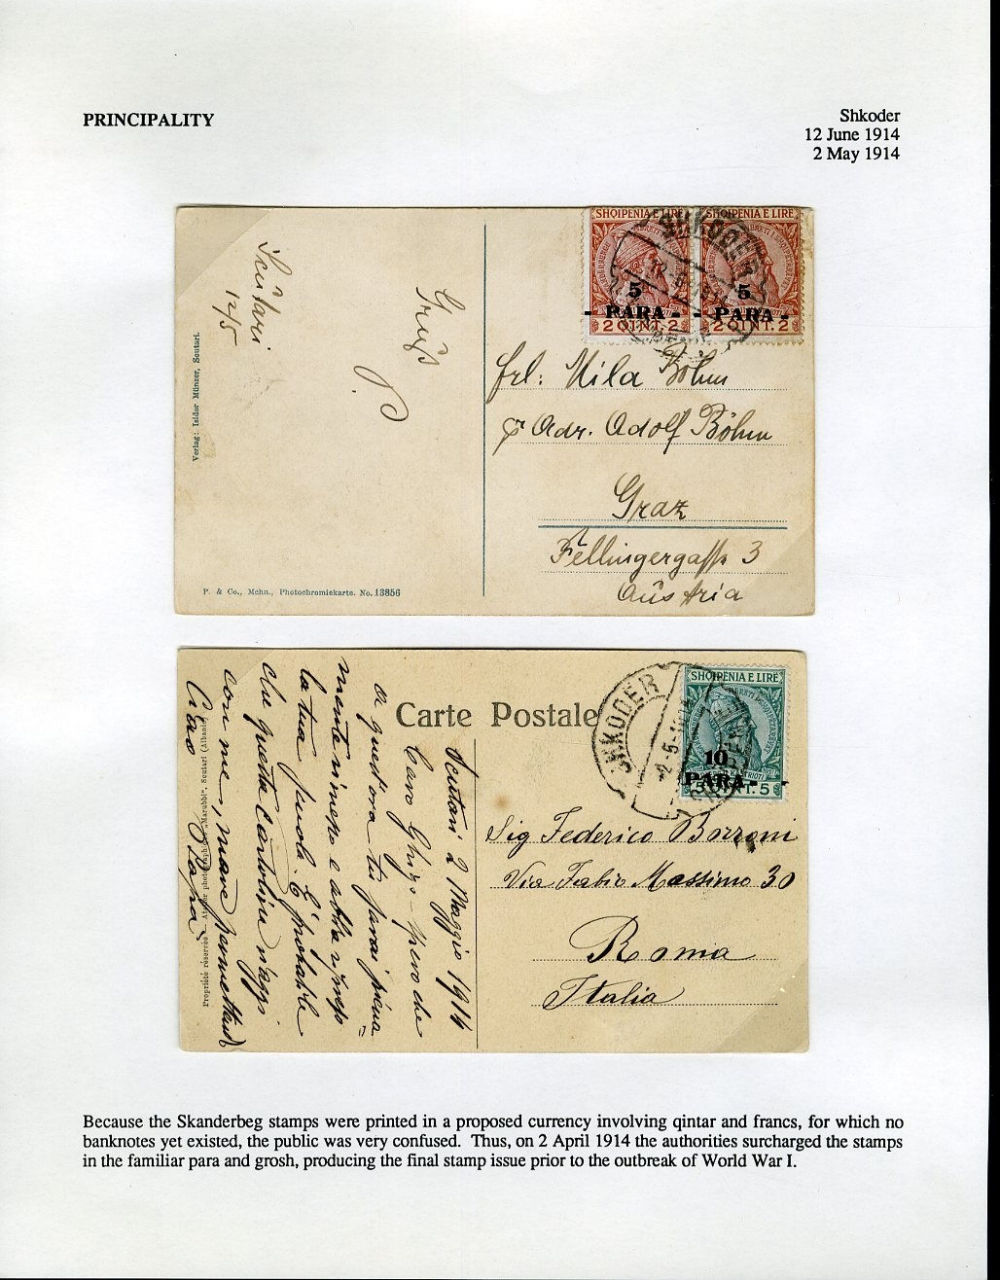 PRINCIPALITY
Shkoder
12 June 1914
2 May 1914
SHQIPENIA E LIRE
SHQIPENIA E LIRE
SHKODER
5
PARA
5
PARA
2 QINT. 2
2 QINT. 2
Scutari
12/5
Gruß
Verlag: Isidor Münzer, Scutari.
frl: Mila Böhm
Adr. Adolf Böhm
Graz
Fellingergasse 3
Austria
P. & Co., Mchn., Photochromiekarte. No. 13856
Carte Postale
SHQIPENIA E LIRE
SHKODER
2-5-
10
PARA
5 QINT. 5
Scutari 2 Maggio 1914
Caro Ghigo - spero che
a quest'ora tu sarai piena
mente rimesso e abbia ripreso
la tua scuola. È probabile
che questa cartolina viaggi
con me, mare permettendo
Ciao Papà
Propriété réservée - Atelier photographique "Marubbi", Scutari (Albanie)
Sig Federico Bozzoni
Via Fabio Massimo 30
Roma
Italia
Because the Skanderbeg stamps were printed in a proposed currency involving qintar and francs, for which no
banknotes yet existed, the public was very confused. Thus, on 2 April 1914 the authorities surcharged the stamps
in the familiar para and grosh, producing the final stamp issue prior to the outbreak of World War I.